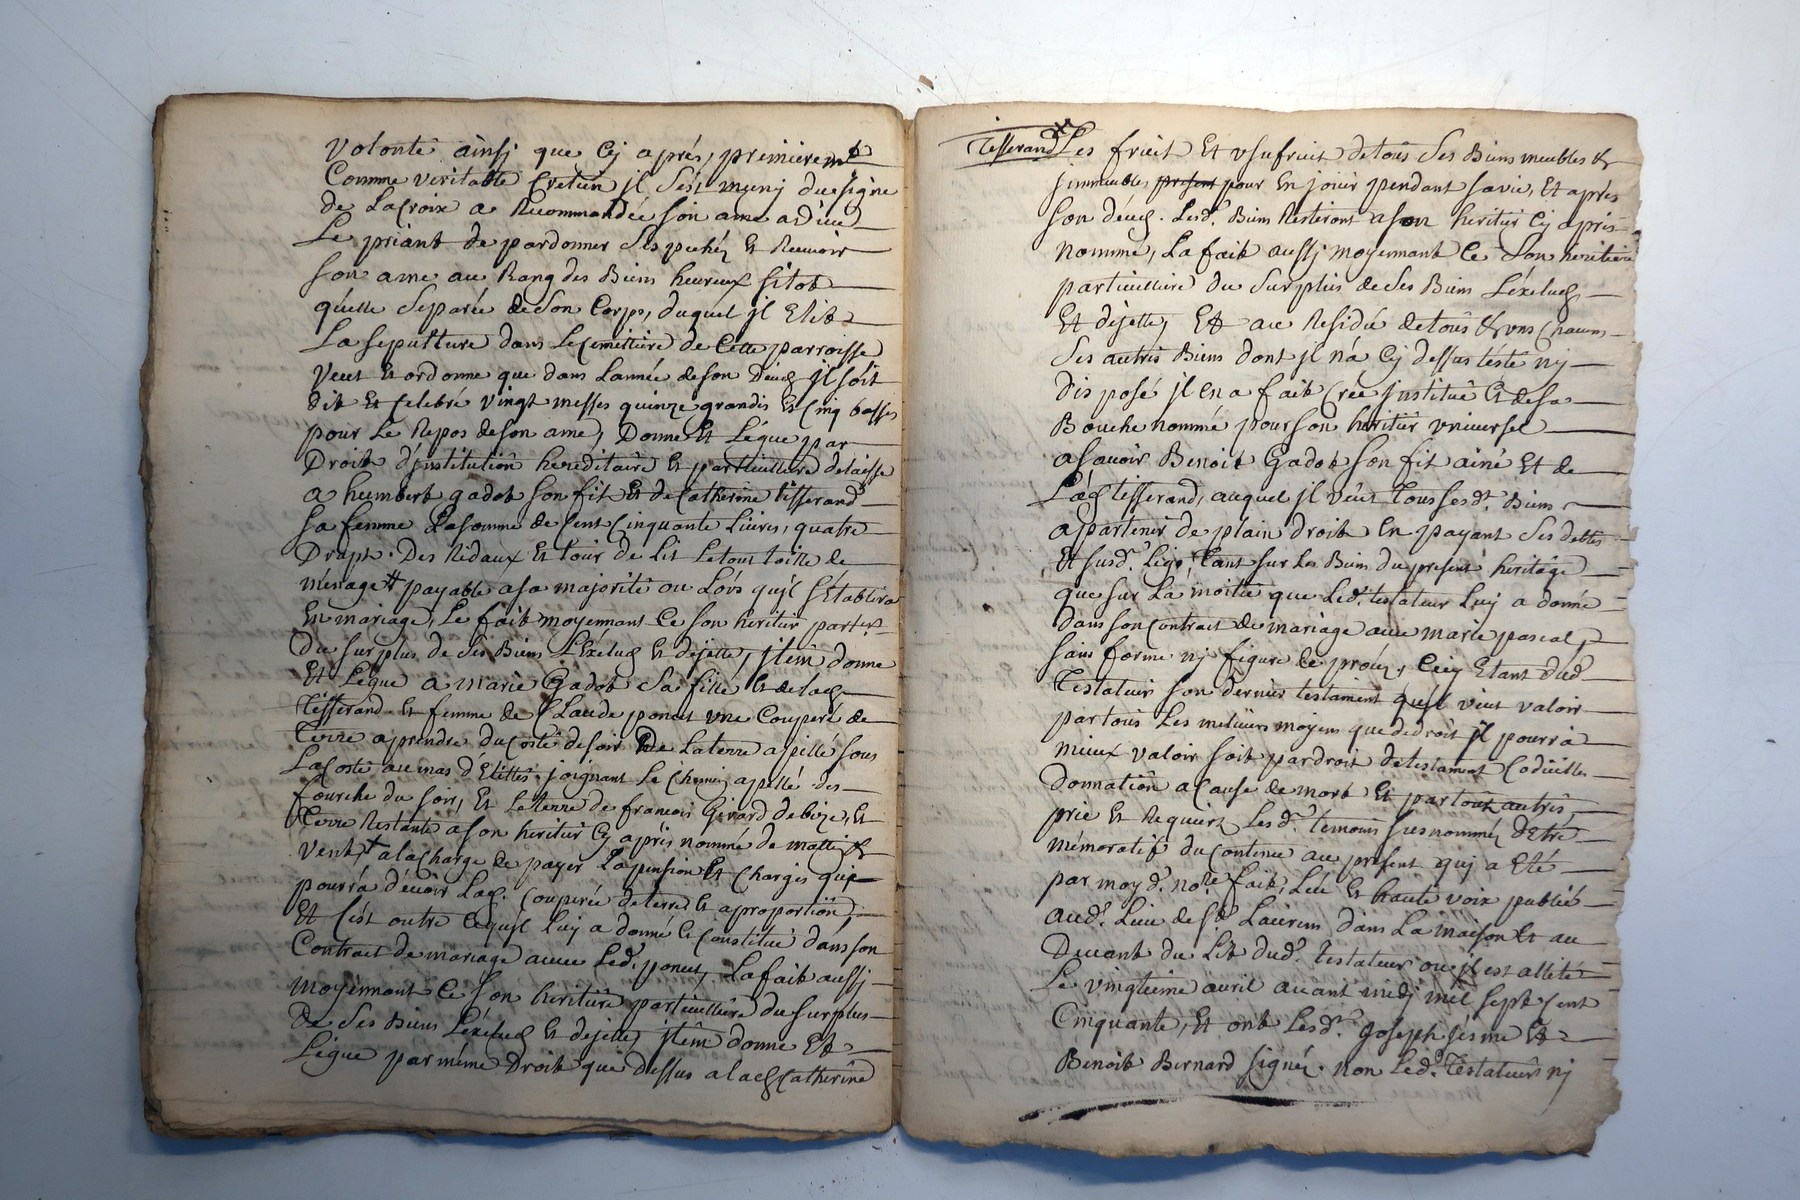 volonté ainsj que Cj aprés, premierem.t
Comme veritable Cretien jl s'est munj du signe
de La Croix a Recommandée son ame a dieu
Le priant de pardonner ses pechéz et Recevoir
son ame au Rang des Biens heureux sitot
quelle separée de son Corps, duquel jl Elit
La sepulture dans Le Cemittiere de Cette parroisse
veut et ordonne que dans Lannée de son Décez jl soit
dit et Celebré vingt messes quinze grandes et Cinq basses
pour Le Repos de son ame, Donne et Légue par
Droit d'jnstitution hereditaire et particulliere delaisse
a humbert gadot son fit et de Catherine tisserand
sa femme La somme de Cent Cinquante Livres, quatre
Draps. Des Ridaux et tour de Lit Le tout toille de
ménage payable a sa majorité ou Lors qujl s'Etablira
En mariage, Le fait moyennant Ce son heritier partier
Du surplus de ses Biens L'exclud et dejette, jtém donne
Et Légue a marie Gadot sa fille et de lad.
Tisserand et femme de Claude poncet une Couperé de
Terre a prendre du Costé de soir de La terre apellé sous
La Coste au mas d'Elettes joignant Le Chemin apellé des
fourche du soir, Et La terre de francois Girard de bize, Et
Terre Restante a son heritier Cj aprés nommé de matin &
vent, a la Charge de payer La pension et Charges que
pourra devoir Lad. Couperée de terre et a proportion,
Et C'est outre Ce qujl Luj a donné et Constitué dans son
Contrait de mariage avec Led. poncet, La fait aussj
moyennant Ce son heritiere particulliere du surplus
De ses Biens L'exclud et dejette, jtêm donne Et
Légue par méme Droit que dessus a lad Catherine
Tisserand Les fruit Et usufruit de tous ses Biens meubles &
jmmeubles present pour En jouir pendant sa vie, Et aprés
son décez. Lesd. Biens Resteront a son heritier Cj aprés
nommé, La fait aussj moyennant Ce son heritiere
particulliere du surplus de ses Biens L'éxclud
Et dejette, Et au Residü de tous & uns Chacuns
ses autres Biens dont jl n'a Cj dessus tésté nj
disposé jl en a fait Créé jnstitué et de sa
Bouche nommé pour son heritier universel
a savoir Benoit Gadot son fit ainé Et de
Lad tisserand, auquel jl veut tous sesd. Biens
apartenir de plain droit en payant ses dettes
Et susd. Legs, tant sur Les Biens du present heritage
que sur La moitié que Led. testateur Luj a donné
dans son Contrait de mariage avec marie pascal,
sans forme nj figure de procez, Cecy Etant dud.
Testateur son dernier testament qujl veut valoir
par tous Les meilieurs moyens que de droit jl pourra
mieux valoir soit par droit de testament Codicille
Donnation a Cause de mort Et par tout autres,
prie Et Requiert Lesd. temoins susnomméz d'Etre
mémoratif du Contenu au present quj a Eté
par moy d. no.re fait, Leu et haute voix publié
aud. Lieu de s.t Laurens dans La maison Et au
Devant du Lit dud. testateur ou jl est allité
Le vingtieme avril avant midj mil sept Cent
Cinquante, Et ont Lesd. Joseph jésme Et
Benoit Bernard signéz. non Led. Testateur nj